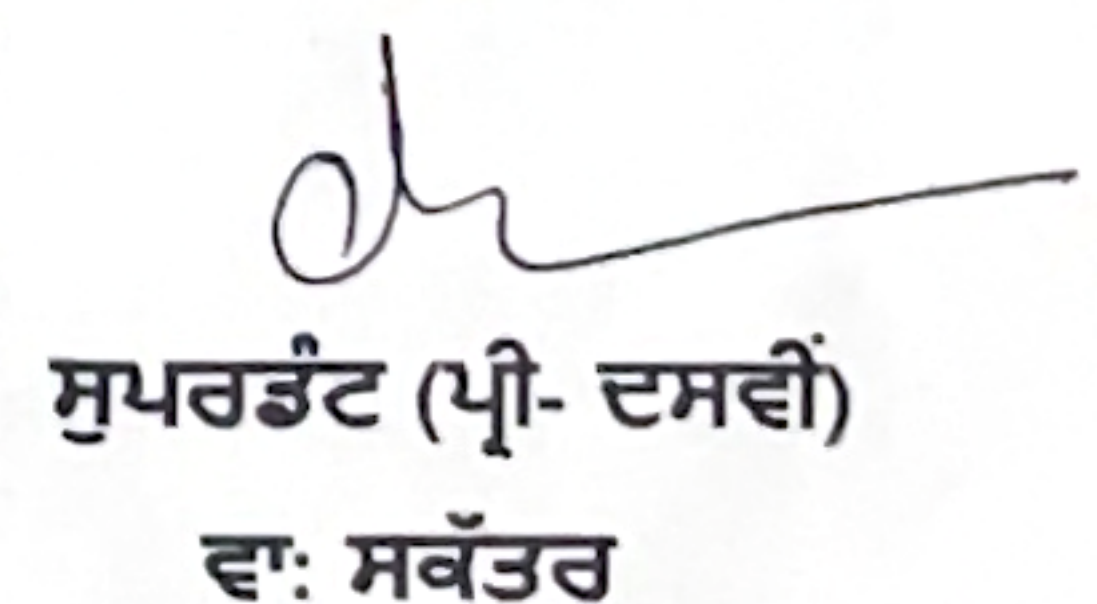 ਸੁਪਰਡੰਟ (ਪ੍ਰੀ- ਦਸਵੀਂ)
ਵਾ: ਸਕੱਤਰ